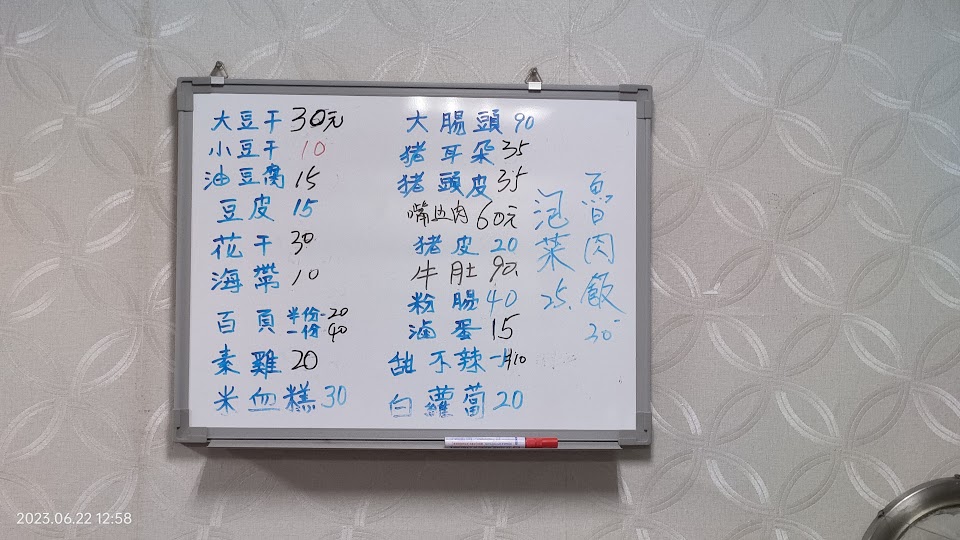 大豆干 30元
小豆干 10
油豆腐 15
豆皮 15
花干 30
海帶 10
百頁 半份-20
一份-40
素雞 20
米血糕 30
大腸頭 90
豬耳朵 35
豬頭皮 35
嘴边肉 60元
豬皮 20
牛肚 90.
粉腸 40
滷蛋 15
甜不辣 一片10
白蘿蔔 20
魯肉飯 30
泡菜 25.
2023.06.22 12:58